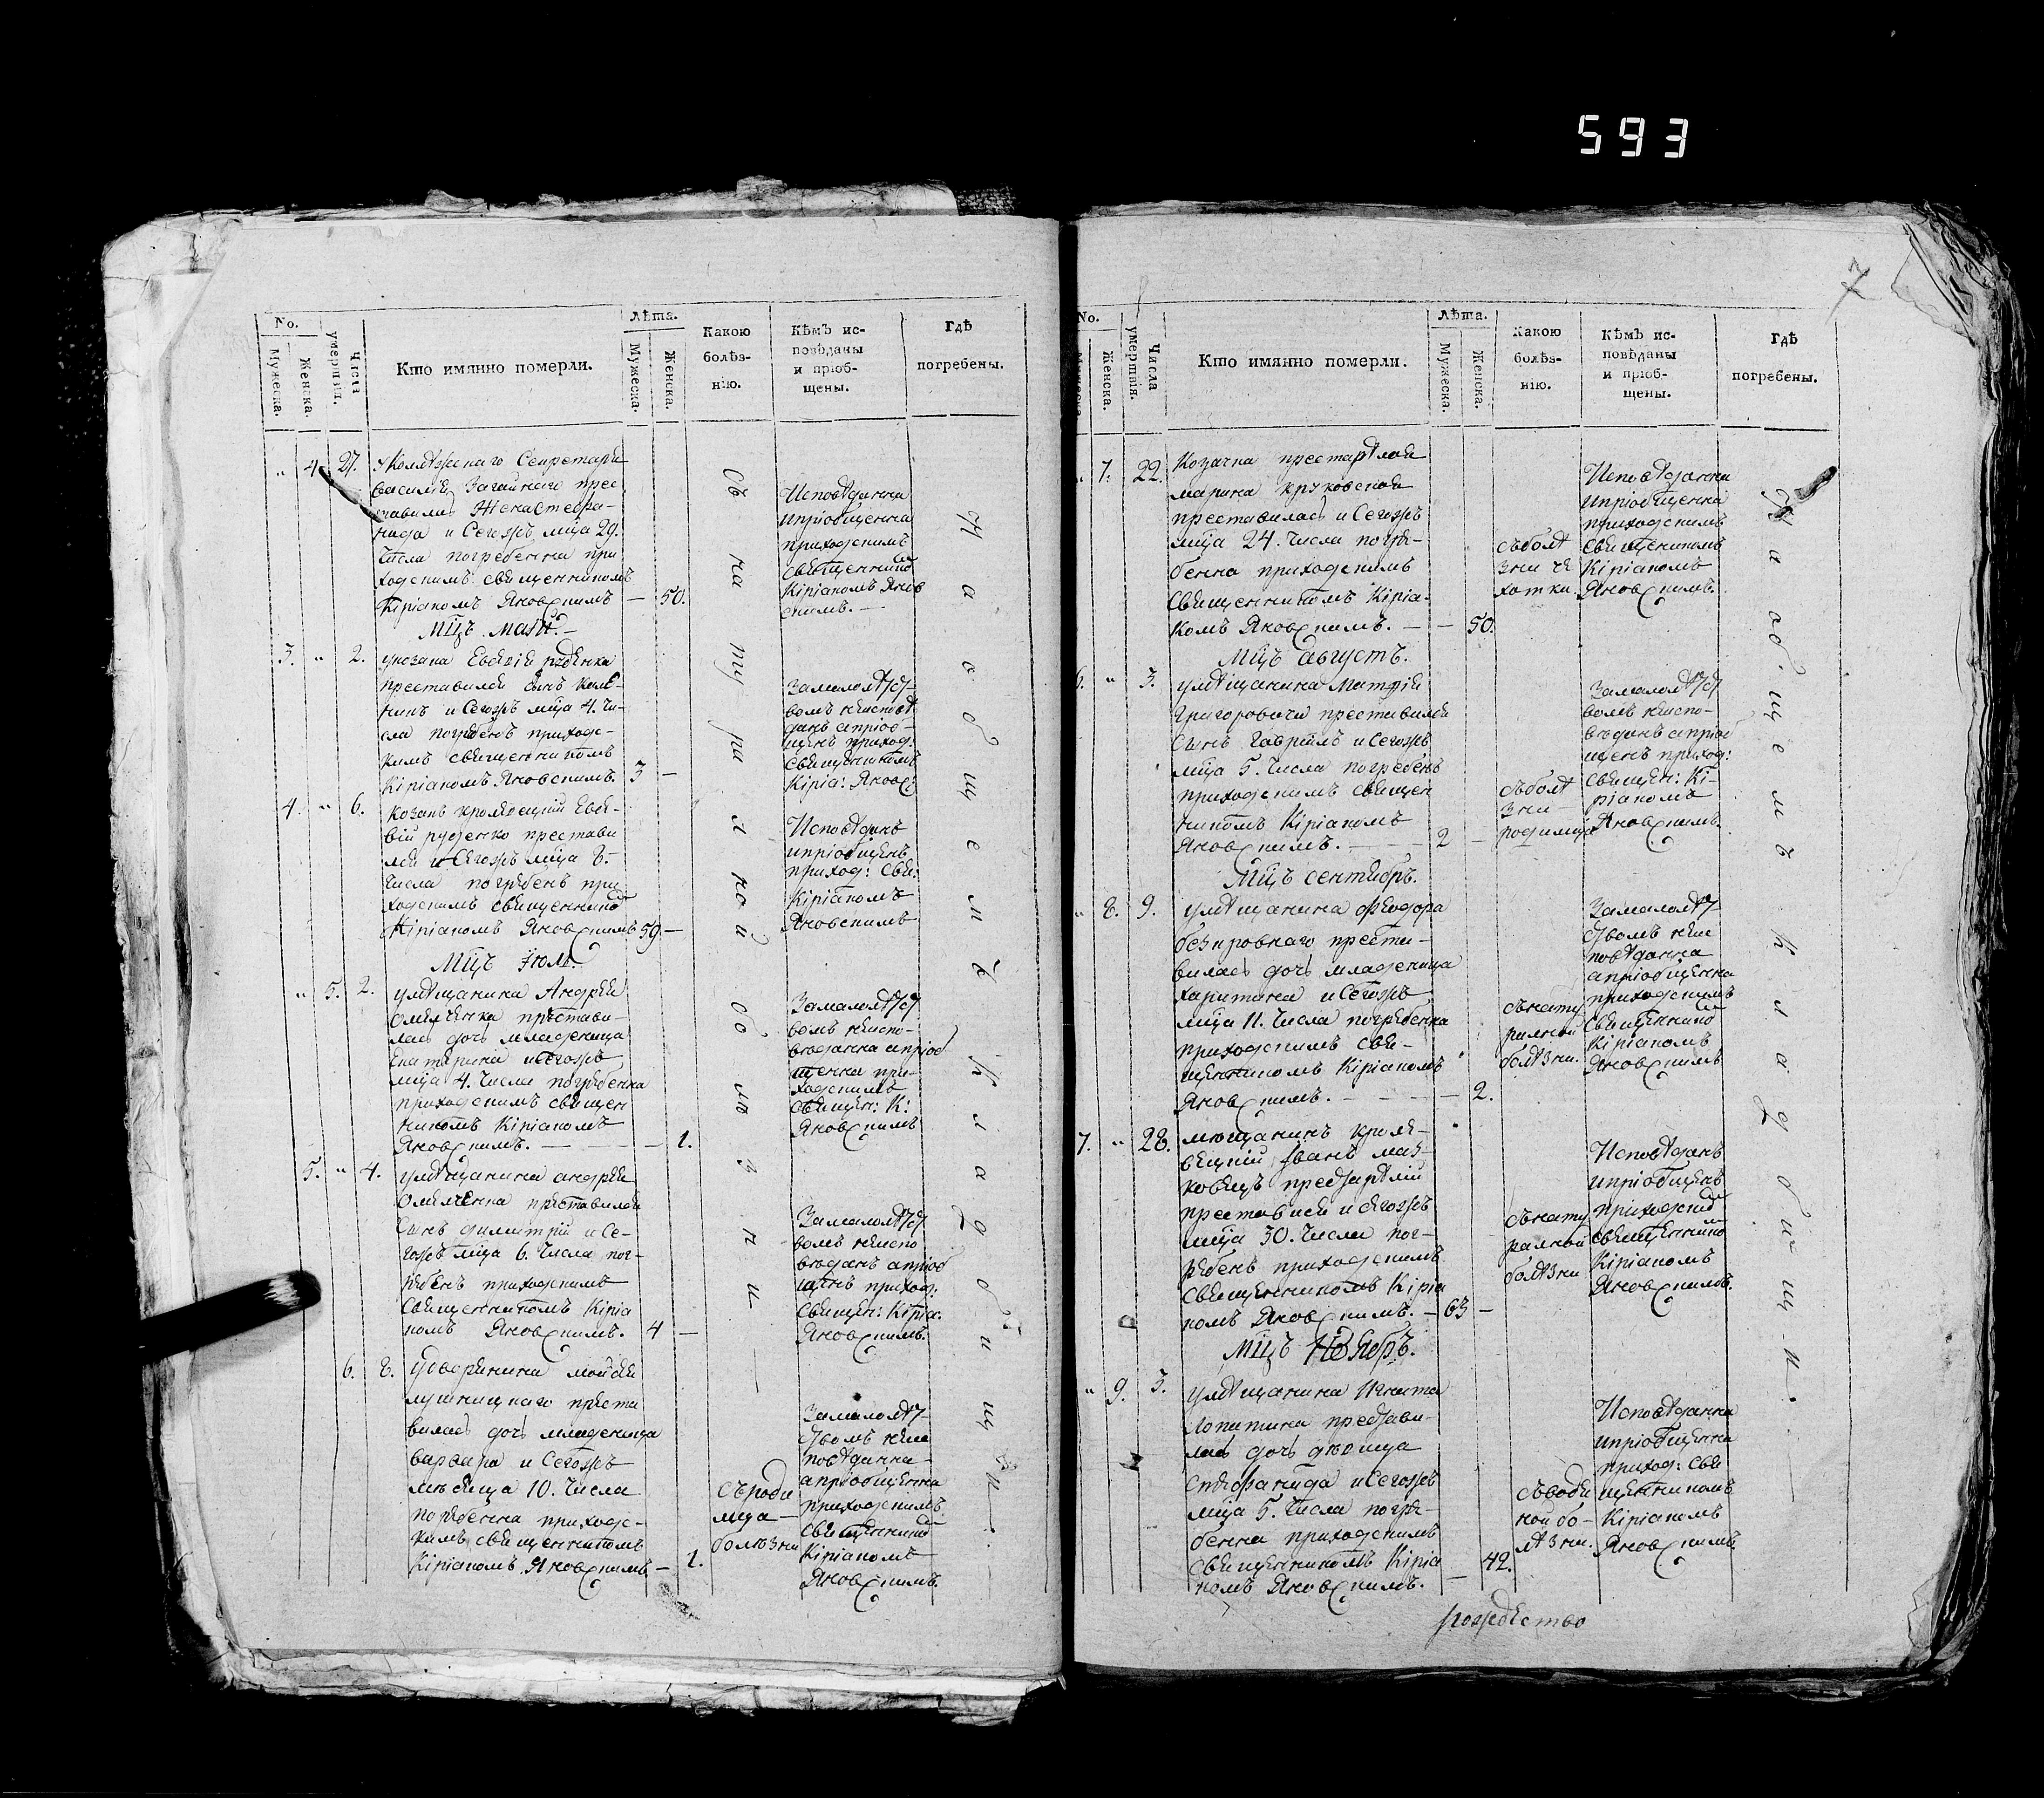 593
7
No.
Мужеска.
Женска.
Числа умершихъ.
Кто имянно померли.
Лѣта.
Мужеска.
Женска.
Какою болѣз-
нію.
Кѣмъ ис-
повѣданы
и пріоб-
щены.
Гдѣ
погребены.
" 4. 27.
уколѣжскаго Секретаря
василия Загайнаго прес
тавилас Жена стефа-
нида и Сегожъ мца 29.
числа погребенна при
ходскимъ священникомъ
Киріакомъ Яновскимъ — 50.
Исповѣданна
ипріобщенна
приходскимъ
священнико
Киріакомъ Янов
скимъ. —
Мцъ май. —
3. " 2.
укозака Евсѣвія руденка
преставился сынъ
и Сегожъ мца 4. чи-
сла погребенъ приходс-
кимъ священникомъ
Киріакомъ Яновскимъ. 3 —
Замалолѣтст-
вомъ неисповѣ
данъ апріоб-
щенъ приход:
священникомъ
Киріа: Яновс:
4. " 6.
козакъ кролевецкій Евсе-
вій руденко престави
лся и Сегожъ мца 8.
числа погребенъ при
ходскимъ священнико
Киріакомъ Яновскимъ 59. —
Исповѣданъ
ипріобщенъ
приход: Свя:
Киріакомъ
Яновскимъ
Мцъ Июль.
" 5. 2.
умѣщанина Андрея
Омелченка престави-
лась дочь младеница
Екатерина исегожъ
мца 4. числа погребенна
приходскимъ священ
никомъ Киріакомъ
Яновскимъ. — — 1.
Замалолѣтст
вомъ неиспо-
вѣданна апріоб
щенна при-
ходскимъ
Священ: К:
Яновскимъ
5. " 4.
умѣщанина андрея
Омелченка преставился
Сынъ димитрій и Се-
гожъ мца 6. числа пог-
ребенъ приходскимъ
Священникомъ Киріа
комъ Яновскимъ. 4 —
Замалолѣтст
вомъ неиспо
вѣданъ апріоб
щенъ приход:
Священ: Киріа:
Яновскимъ.
6. 8.
Удворянина мойсея
лушницкаго преста
вилась дочь младеница
варвара и Сегожъ
мѣсяца 10. числа
погребенна приходс-
кимъ священникомъ
Киріакомъ Яновскимъ — 1.
Съроди
мца —
болѣзни
Замалолѣт-
ствомъ неис
повѣданна-
апріобщенна
приходскимъ
Священнико
Киріакомъ
Яновскимъ.
Съ натуралной болѣзни —
На общемъ кладбищи.
No.
Мужеска.
Женска.
Числа умершихъ.
Кто имянно померли.
Лѣта.
Мужеска.
Женска.
Какою
болѣз-
нію.
Кѣмъ ис-
повѣданы
и пріоб-
щены.
Гдѣ
погребены.
" 7. 22.
Козачка престарѣлая
марина круковская
преставилась и Сегожъ
мца 24. числа погре-
бенна приходскимъ
Священникомъ Киріа-
комъ Яновскимъ. — — 50.
съболѣ
зни че
хотки.
Исповѣданна
ипріобщенна
приходскимъ
священникомъ
Киріакомъ
Яновскимъ.
Мцъ августъ.
6. " 3.
умѣщанина Матфія
Григоровича преставился
Сынъ Гавріилъ и Сегожъ
мца 5. числа погребенъ
приходскимъ священ
никомъ Киріакомъ
Яновскимъ. — — — 2 —
съболѣ
зни —
родимца
Замалолѣтст
вомъ неиспо-
вѣданъ апріоб
щенъ приход:
священ: Ки-
ріакомъ
Яновскимъ.
Мцъ сентябръ.
" 8. 9.
умѣщанина Феодора
безкровнаго преста-
вилась дочь младеница
харитина и Сегожъ
мца 11. числа погребенна
приходскимъ свя-
щенникомъ Киріакомъ
Яновскимъ. — — — — 2.
Снату
ралной
болѣзни.
Замалолѣт-
ствомъ неис
повѣданна
апріобщенна
приходскимъ
священнико
Киріакомъ
Яновскимъ
7. " 28.
мѣщанинъ кроле-
вецкій Іванъ маз-
ковецъ предстарѣлій
преставися и сегожъ
мца 30. числа пог-
ребенъ приходскимъ
священникомъ Киріа
комъ Яновскимъ. — 63 —
Снату
ралной
болѣзни
Исповѣданъ
ипріобщенъ
приходски
священнико
Киріакомъ
Яновскимъ.
Мцъ Ноябръ.
" 9. 3.
умѣщанина Игната
Лопатина представи-
лась дочь дѣвица
Стефанида и Сегожъ
мца 5. числа погре-
бенна приходскимъ
священникомъ Киріа
комъ Яновскимъ. — 42.
Съводя
ной бо-
лѣзни.
Исповѣданна
ипріобщенна
приход: свя
щенникомъ
Киріакомъ
Яновскимъ
На общемъ кладбищи.
рождество